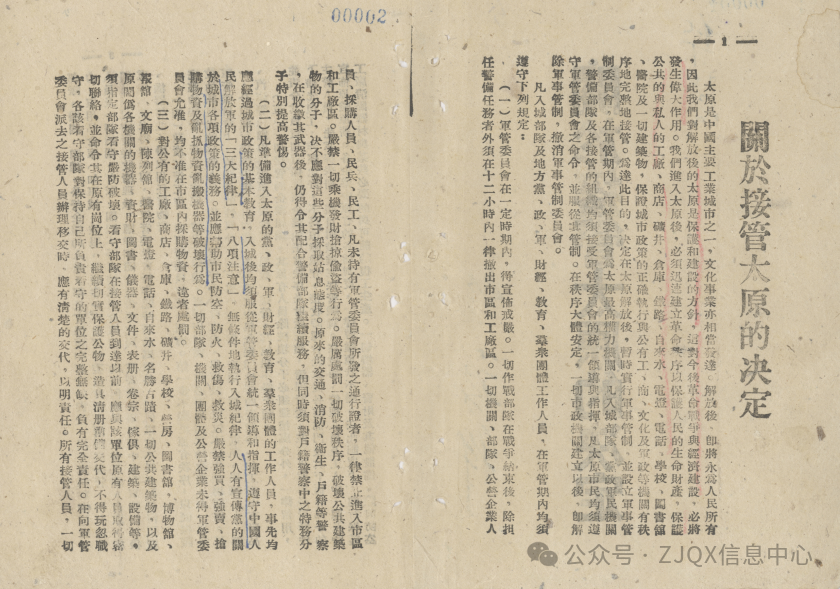 — 1 —
關於接管太原的决定
太原是中國主要工業城市之一，文化事業亦相當發達，解放後，即將永爲人民所有
，因此我們對解放後的太原是保護和建設的方針，這對今後革命戰爭與經濟建設，必將
發生偉大作用。我們進入太原後，必須迅速建立革命秩序以保護人民的生命財產，保護
公共的與私人的工廠、商店、礦井、倉庫、鐵路、自來水、電燈、電話、學校、圖書館
、醫院及一切建築物，保證城市政策的正確執行與公有工、商、文化及軍政等機關有秩
序地完整地接管。爲達此目的，決定在太原解放後，暫時實行軍事管制，並設立軍事管
制委員會，在軍管期內，軍管委員會爲太原最高權力機關，凡入城部隊、黨政軍民機關
，警備部隊及各接管的組織均須接受軍管委員會的統一領導與指揮，凡太原市民均須遵
守軍管委員會之命令，並服從其管制。在秩序大體安定，一切市政機關建立以後，即解
除軍事管制，撤消軍事管制委員會。
凡入城部隊及地方黨、政、軍、財經、教育、羣衆團體工作人員，在軍管期內均須
遵守下列規定：
（一）軍管委員會在一定時期內，得宣佈戒嚴。一切作戰部隊在戰爭結束後，除担
任警備任務者外須在十二小時內一律撤出市區和工廠區。一切機關、部隊、公營企業人
00002
員、採購人員、民兵、民工，凡未持有軍管委員會所發之通行證者，一律禁止進入市區
和工廠區。嚴禁一切乘機發財搶掠偷盜等行爲。嚴厲處罰一切破壞秩序，破壞公共建築
物的分子，决不應對這些分子採取姑息態度。原來的交通、消防、衞生、戶籍等警察
，在收繳其武器後，仍得令其配合警備部隊繼續服務，但同時須對戶籍警察中之特務分
子特別提高警惕。
（二）凡準備進入太原的黨、政、軍、財經、教育、羣衆團體的工作人員，事先均
應經過城市政策的基本教育，入城後均須服從軍管委員會統一領導和指揮，遵守中國人
民解放軍的「三大紀律」、「八項注意」，無條件地執行入城紀律，人人有宣傳黨的關
於城市各項政策的義務。並應幫助市民防空、防火、救傷、救災。嚴禁強買、強賣、搶
購物資及亂抓物資亂搬機器等破壞行爲。一切部隊、機關、團體及公營企業未得軍管委
員會允准，均不准在市區內採購物資，違者處罰。
（三）對公有的工廠、商店、倉庫、鐵路、礦井、學校、營房、圖書館、博物館、
報館、文廟、陳列館、醫院、電燈、電話、自來水、名勝古蹟、一切公共建築物，以及
原屬僞各機關的機器、資財、圖書、儀器、文件、表册、卷宗、傢俱、建築、設備等，
須指定部隊看守嚴防破壞。看守部隊在接管人員到達以前，應與該單位原有人員取得密
切聯絡，並命令其在原有崗位上，繼續切實保護公物，造具清册準備交代，不得玩忽職
守，各該看守部隊對保持自己所負責看守的單位之完整無缺，負有完全責任。在向軍管
委員會派去之接管人員辦理移交時，應有清楚的交代，以明責任。所有接管人員，一切
公众号 · ZJQX信息中心